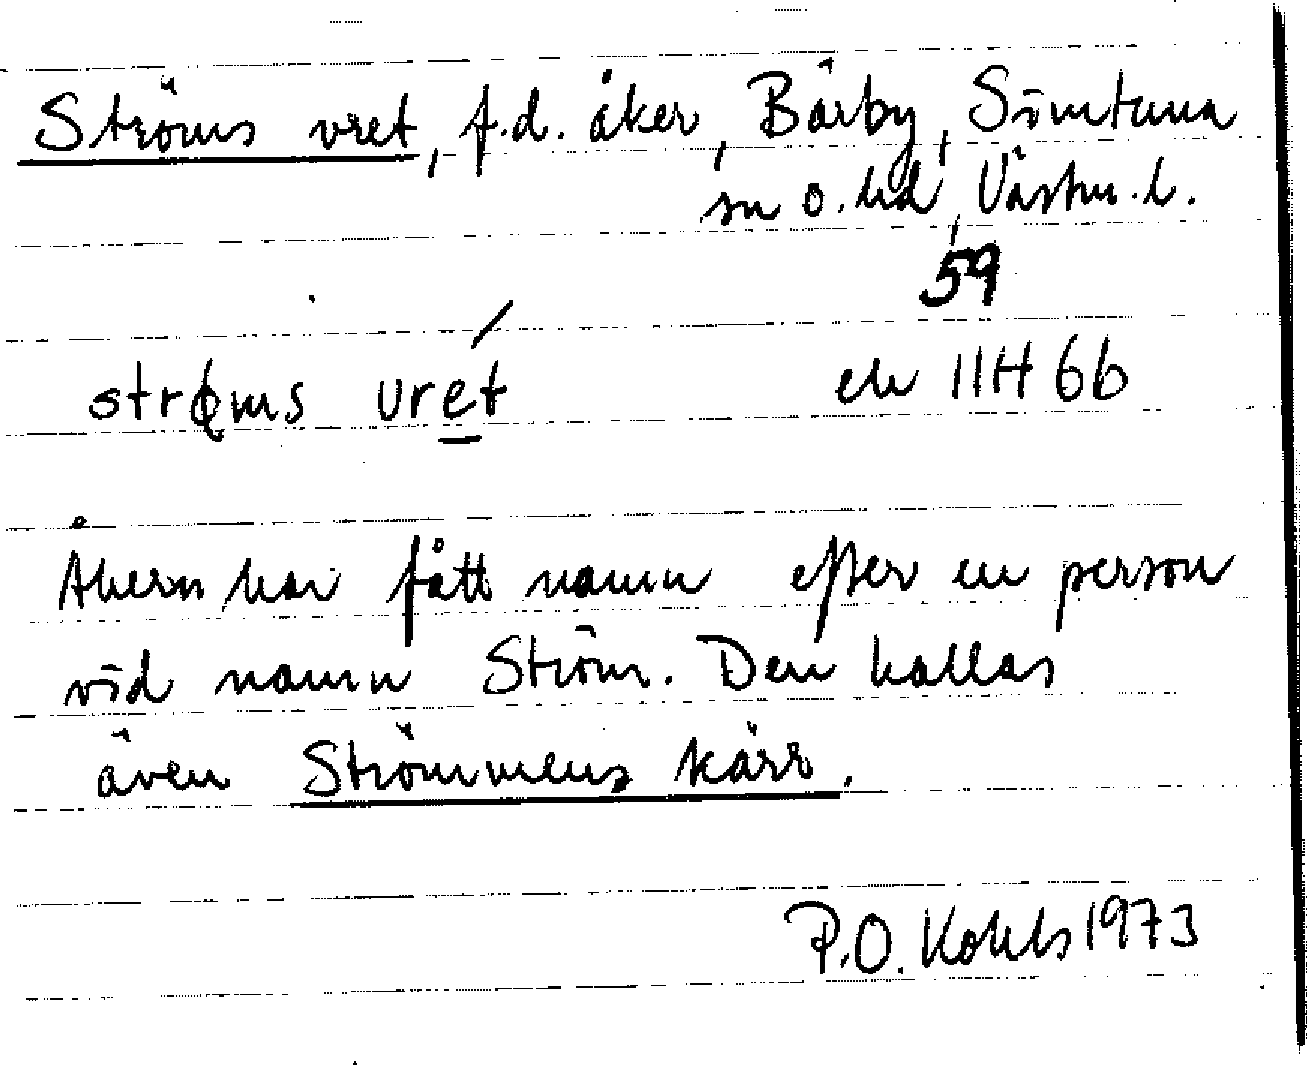 Ströms vret, f.d. åker, Bärby, Simtuna
sn o. hd, Västm. l.
59
strǿms vret
ek 11H 6b
Åkern har fått namn efter en person
vid namn Ström. Den kallas
även Strömmens kärr.
P.O. Kohls 1973